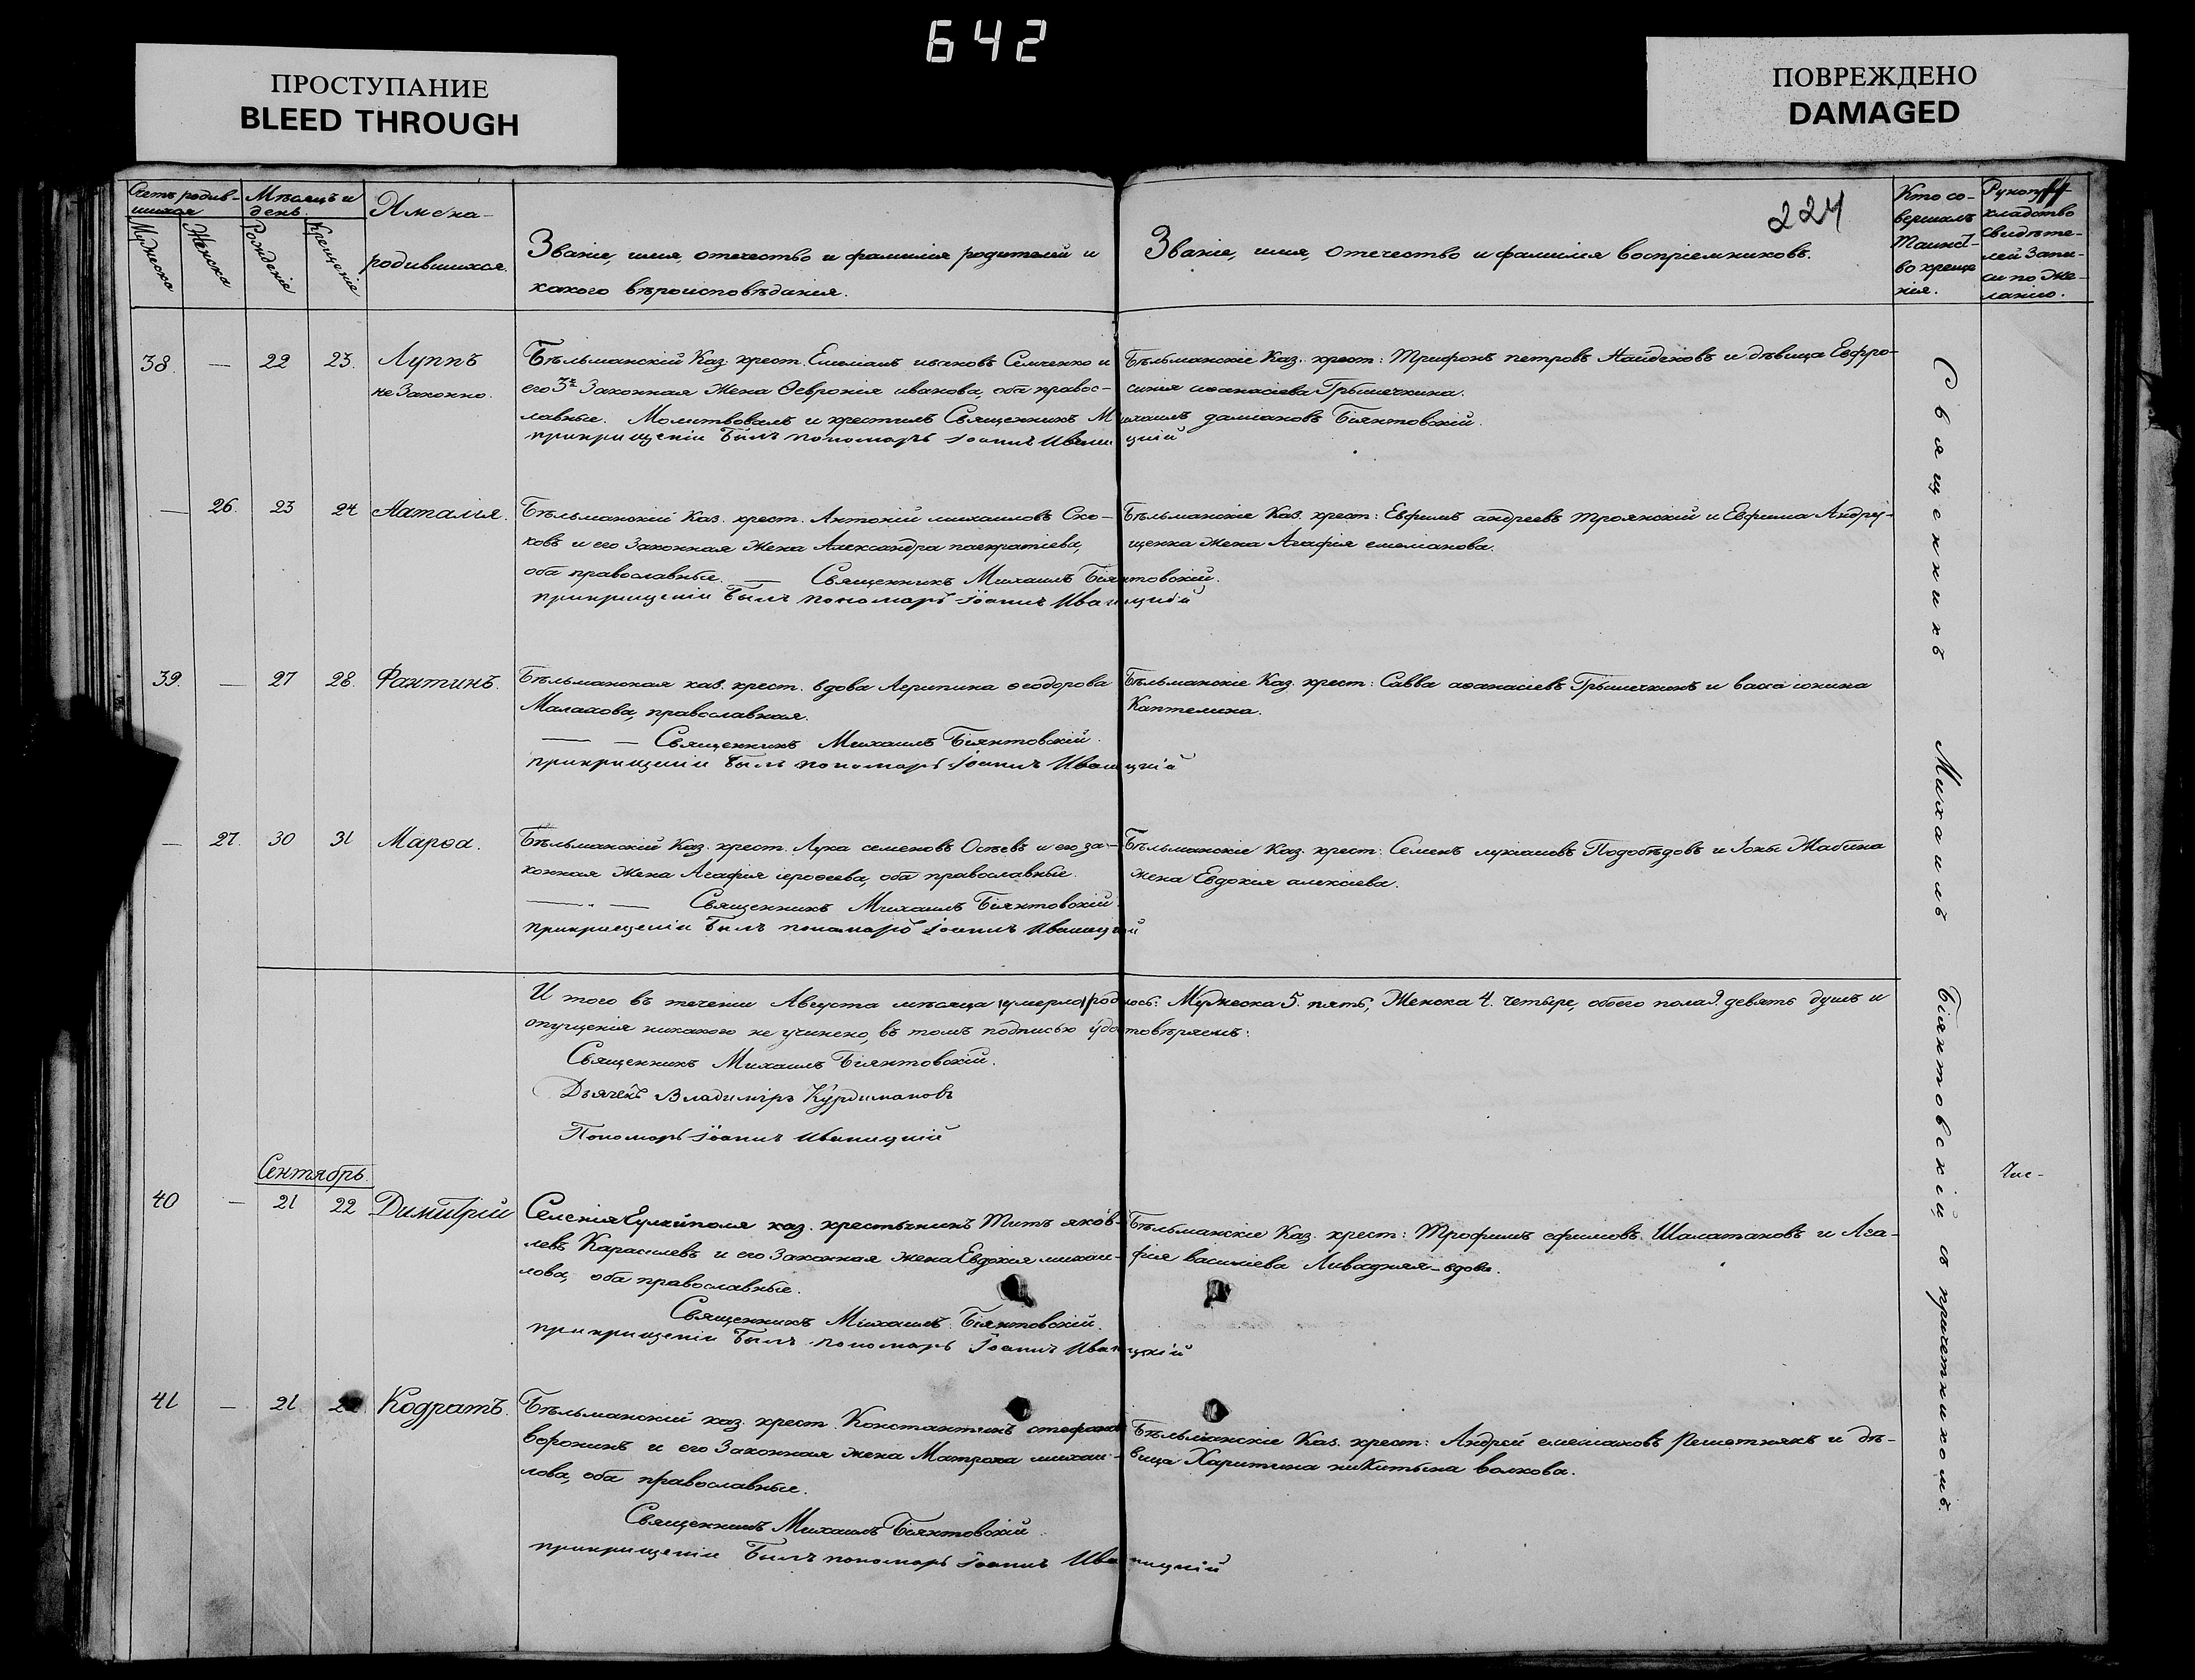 642
ПРОСТУПАНИЕ
BLEED THROUGH
ПОВРЕЖДЕНО
DAMAGED
224
Счетъ родив-
шихся
Мужеска
Женска
Мѣсяцъ и
день.
Рожденіе
Крещеніе
Имена
родившихся.
Званіе, имя, отечество и фамилія родителей и
какого вѣроисповѣданія.
Званіе, имя, отечество и фамилія воспріемниковъ.
Кто со-
вершалъ
таинст-
во креще
нія.
Рукопри-
кладство
свидѣте-
лей запи-
си по же-
ланію.
38. — 22 23. Луппъ
не законно.
Бѣльманскій Каз. крест. Емеліанъ ивановъ Семченко и
его 3я законная жена Ѳевронія иванова, оба правос-
лавные. Молитвовалъ и крестилъ Священникъ Михаилъ даміановъ Біянтовскій.
прикрищеніи былъ пономарь Іоаннъ Иваницкій
Бѣльманскіе Каз. крест: Трифонъ петровъ Найденовъ и дѣвица Евфро-
синія аѳанасіева Грышечкина.
— 26. 23 24 Наталія.
Бѣльманскій Каз. крест. Антоній михаиловъ Ско-
ковъ и его законная жена Александра панкратіева,
оба православные. — Священникъ Михаилъ Біянтовскій.
прикрищеніи былъ пономарь Іоаннъ Иваницкій
Бѣльманскіе Каз. крест: Евфимъ андреевъ Троянскій и Евфима Андрю-
щенка жена Агафія емеліанова.
39. — 27 28. Фантинъ.
Бѣльманская каз. крест. вдова Агрипина ѳеодорова
Малахова, православная.
— — Священникъ Михаилъ Біянтовскій.
прикрищеніи былъ пономарь Іоаннъ Иваницкій
Бѣльманскіе Каз. крест: Савва аѳанасіевъ Грышечкинъ и васса іонина
Каптелина.
— 27. 30 31 Марѳа.
Бѣльманскій Каз. крест. Лука семеновъ Осѣевъ и его за-
конная жена Агафія іероѳеева, оба православные.
— . — Священникъ Михаилъ Біянтовскій.
прикрищеніи былъ пономарь Іоаннъ Иваницкій
Бѣльманскіе Каз. крест: Семенъ лукіановъ Подобѣдовъ и Іоны Жабина
жена Евдокія алексіева.
И того въ теченіи Августа мѣсяца (умерло) родилось: Мужеска 5. пять, Женска 4. четыре, обоего пола 9. девять душъ и
опущенія никакого не учинено, въ томъ подписью удостовѣряемъ:
Священникъ Михаилъ Біянтовскій.
Дьячекъ Владиміръ Курдимановъ
Пономарь Іоаннъ Иваницкій
Сентябрь.
40 — 21 22 Димитрій
Селенія Гуляйполя каз. крестьянинъ Титъ яков-
левъ Карасилевъ и его законная жена Евдокія михаи-
лова, оба православные.
Священникъ Михаилъ Біянтовскій.
прикрищеніи былъ пономарь Іоаннъ Иваницкій
Бѣльманскіе Каз. крест: Трофимъ ефимовъ Шалатановъ и Ага-
фія василіева Ливадняя - вдова.
41 — 21 22 Кодратъ.
Бѣльманскій каз. крест. Константинъ стефановъ
воронинъ и его законная жена Матрона михаи-
лова, оба православные.
Священникъ Михаилъ Біянтовскій.
прикрищеніи былъ пономарь Іоаннъ Иваницкій
Бѣльманскіе Каз. крест: Андрей емеліановъ Решетнякъ и дѣ-
вица Харитина никитына волкова.
Священникъ Михаилъ Біянтовскій съ причетникомъ.
Чис-